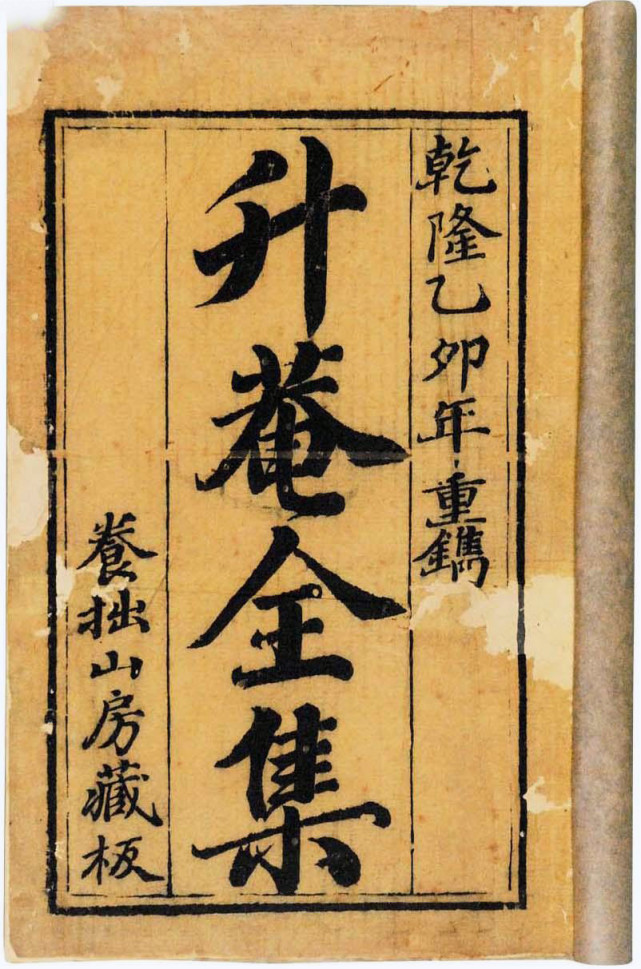 乾隆乙卯年重鐫
升菴全集
養拙山房藏板